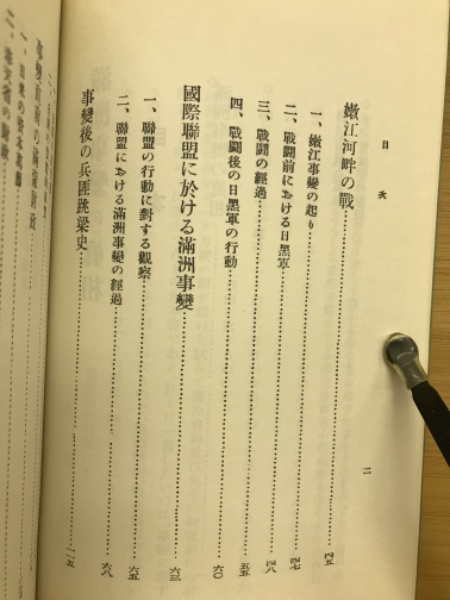 目次
嫩江河畔の戰…四五
一、嫩江事變の起り…四七
二、戰鬪前における日黑軍…四八
三、戰鬪の經過…五五
四、戰鬪後の日黑軍の行動…六〇
國際聯盟に於ける滿洲事變…六三
一、聯盟の行動に對する觀察…六五
二、聯盟における滿洲事變の經過…六八
事變後の兵匪跳梁史…一一五
二
事變前後の滿蒙財政